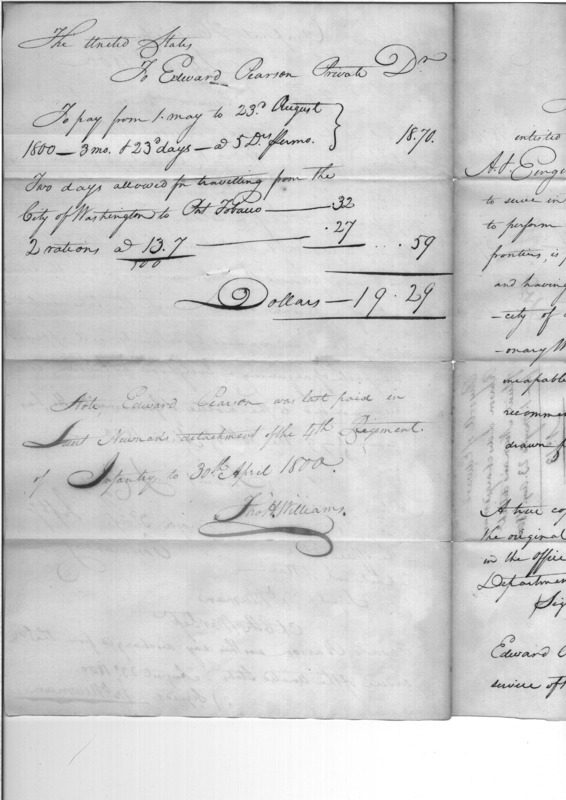 The United States
To Edward Pearson Private Dr
To pay from 1. may to 23.d August
1800 — 3 mo. & 23 days — a 5 Drs permo. 18.70.
Two days allowed for travelling from the
City of Washington to Port Tobacco — .32
2 rations a 13.7 — .27 ... 59
100
Dollars — 19.29
Note Edward Pearson was last paid in
Lieut Newmans detachment of the 4th Regiment
of Infantry to 30th April 1800.
Thos H Williams.
enlisted
to serve in
to perform
frontiers, is
and having
-city of
-onary W
incapable
recommen
drawn f
A true cop
the original
in the office
Departmen
Sig
Edward
service of